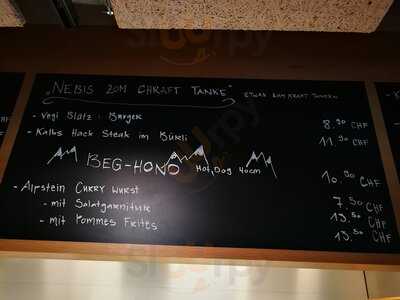 „NEBIS ZOM CHRAFT TANKE" ETWAS ZUM KRAFT TANKEN
- Vegi Blätz : Burger 8.50 CHF
- Kalbs Hack Steak im Bürli 11.50 CHF
BEG-HOND Hot Dog 40cm 10.50 CHF
- Alpstein CURRY WURST 7.50 CHF
- mit Salatgarnitur 13.50 CHF
- mit POMMES FRITES 13.50 CHF